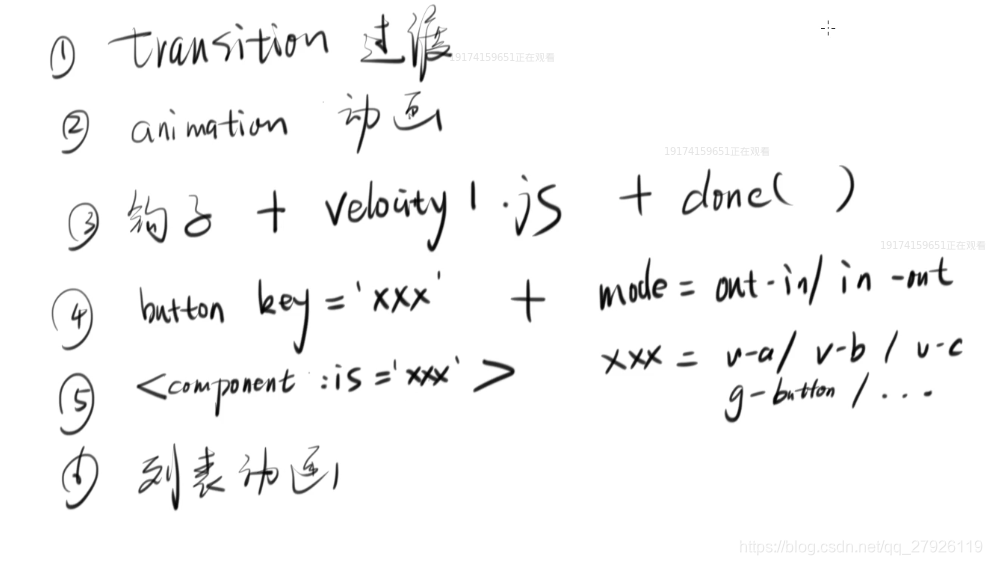 ① transition 过渡
19174159651正在观看
② animation 动画
19174159651正在观看
③ 钩子 + velocity1.js + done( )
19174159651正在观看
④ button key='xxx' + mode = out-in/in-out
⑤ <component :is='xxx'> xxx = v-a/ v-b / v-c
g-button / ...
⑥ 列表动画
https://blog.csdn.net/qq_27926119